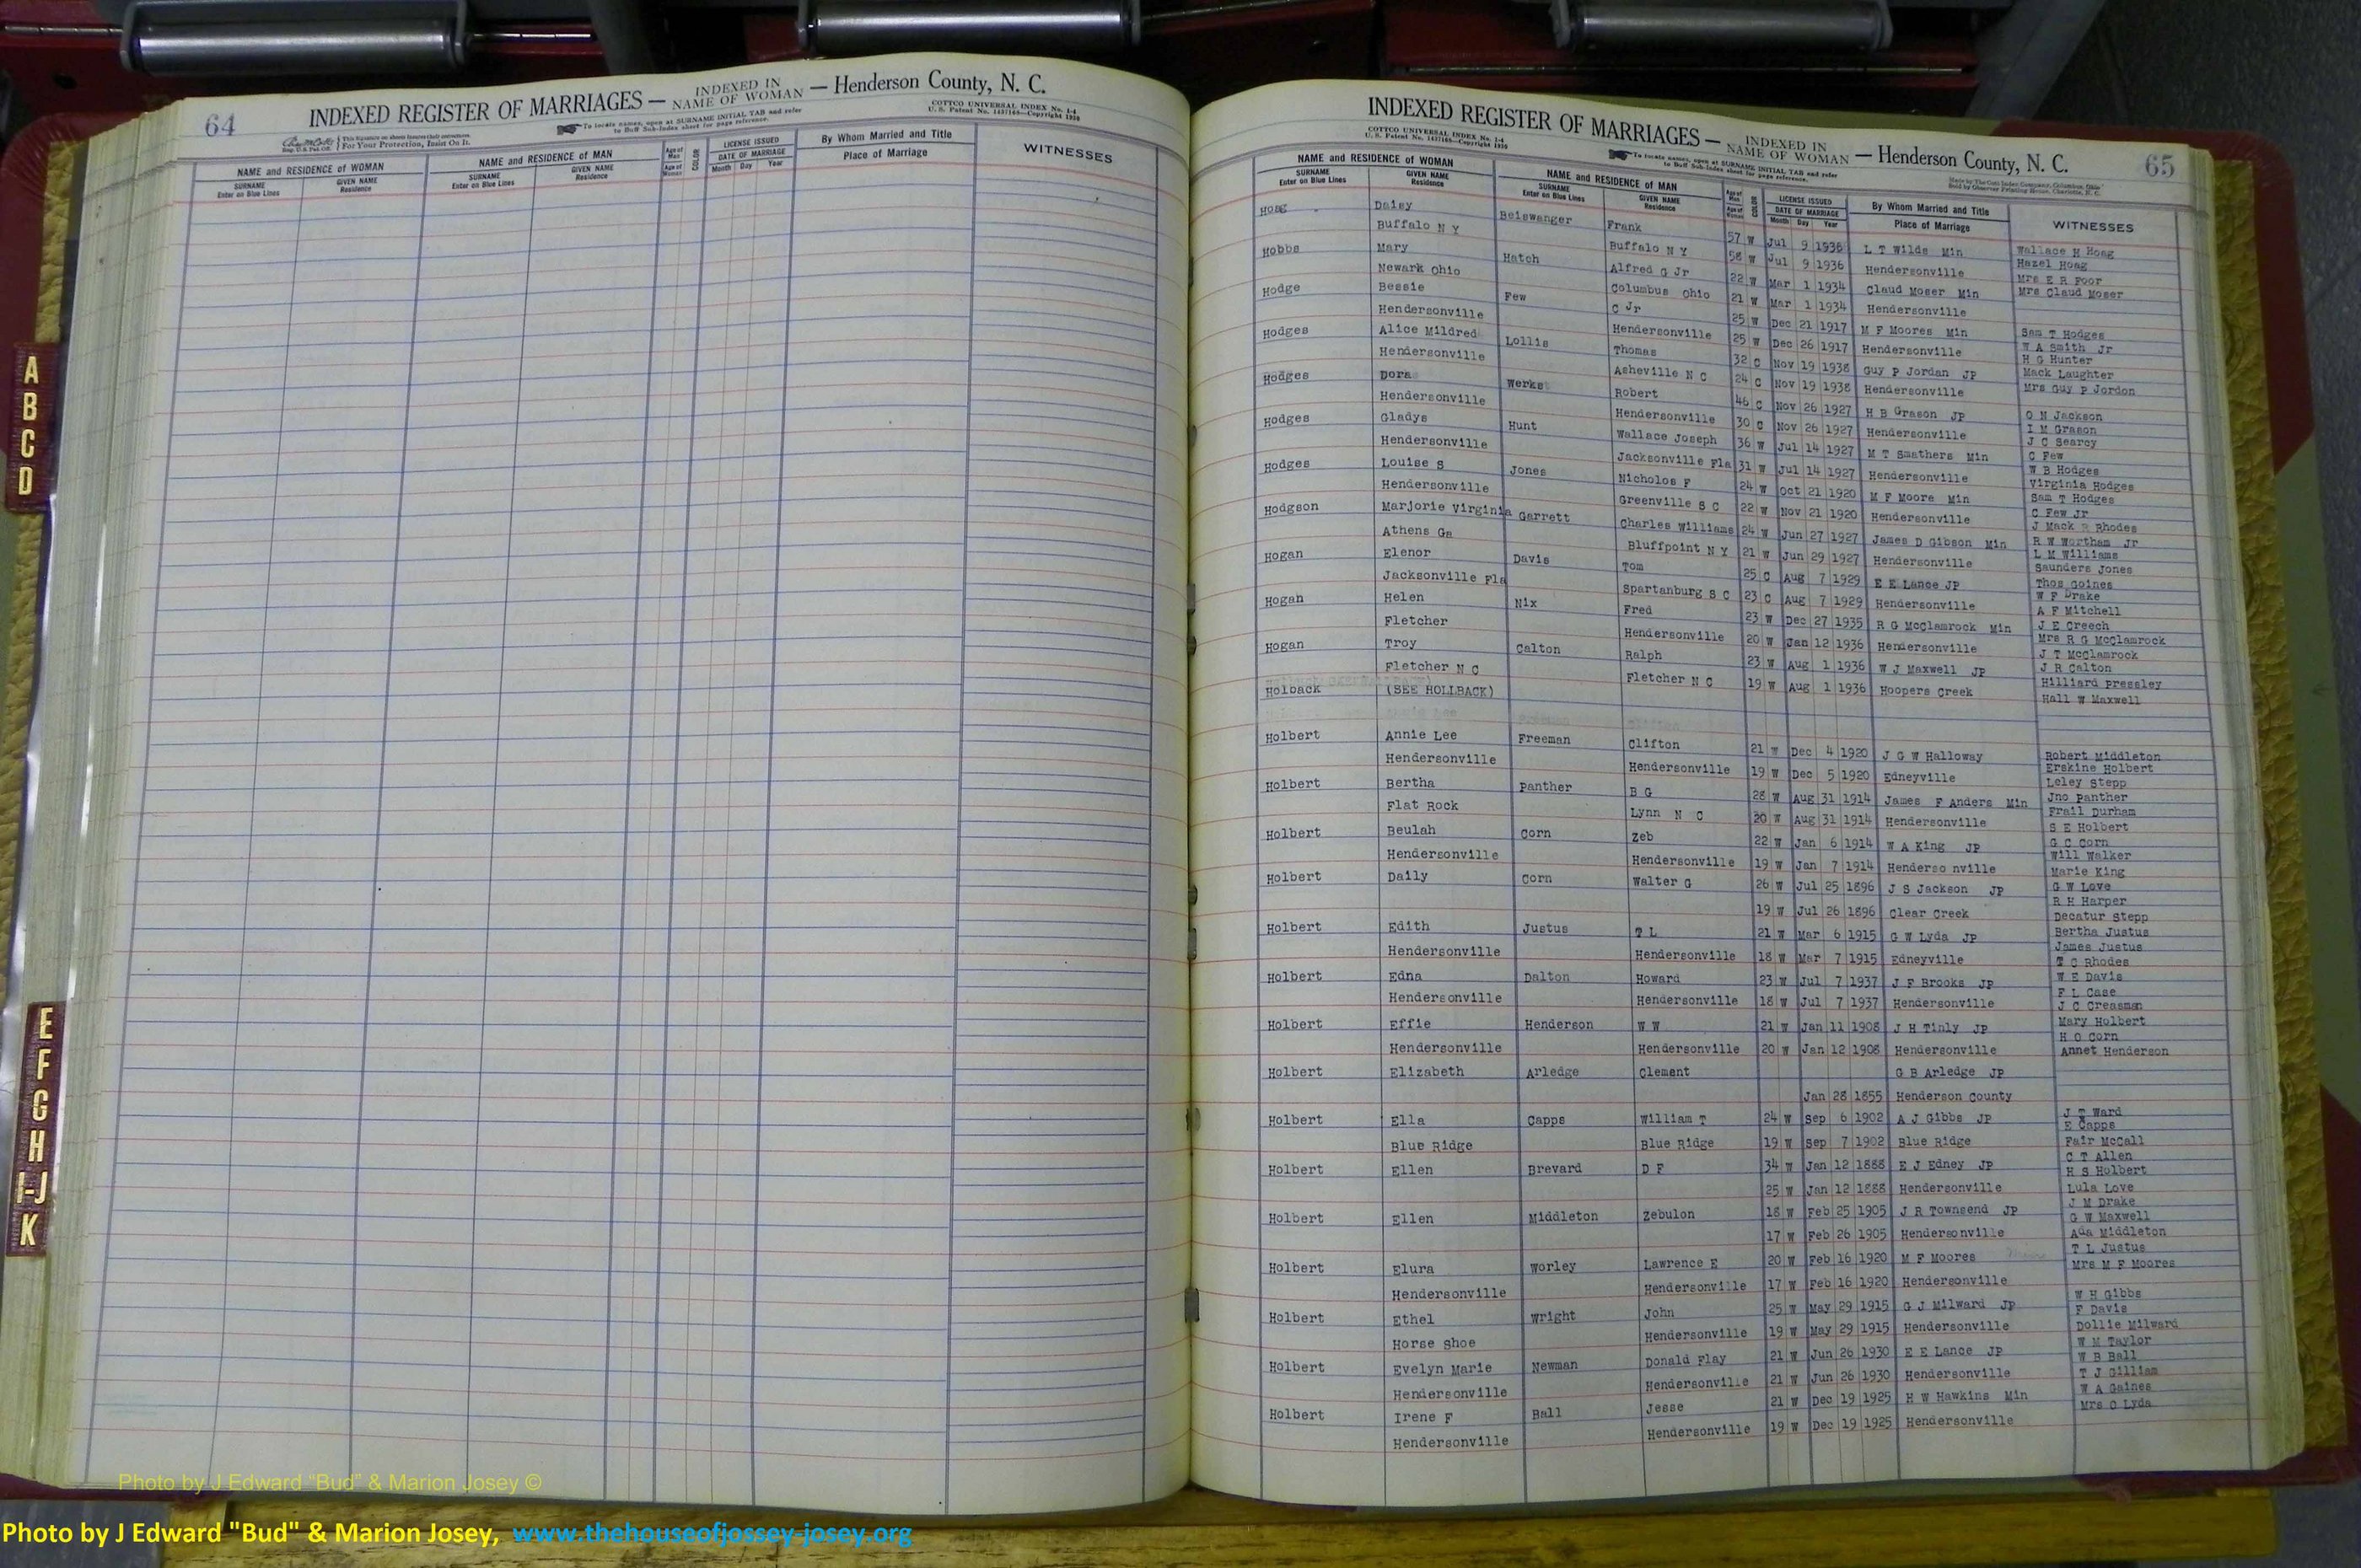 64
INDEXED REGISTER OF MARRIAGES — INDEXED IN NAME OF WOMAN — Henderson County, N. C.
This Signature on sheets insures cloth correctness.
For Your Protection, Insist On It.
To locate names, open at SURNAME INITIAL TAB and refer
to Buff Sub-Index sheet for page reference.
COTTCO UNIVERSAL INDEX No. 1-4
U. S. Patent No. 1437169—Copyright 1930
NAME and RESIDENCE OF WOMAN NAME and RESIDENCE OF MAN Age of Man Age of Woman COLOR LICENSE ISSUED DATE OF MARRIAGE By Whom Married and Title WITNESSES
SURNAME Enter on Blue Lines GIVEN NAME Residence SURNAME Enter on Blue Lines GIVEN NAME Residence Month Day Year Place of Marriage
A
B
C
D
E
F
G
H
I-J
K
INDEXED REGISTER OF MARRIAGES — INDEXED IN NAME OF WOMAN — Henderson County, N. C.
65
COTTCO UNIVERSAL INDEX No. 1-4
U. S. Patent No. 1437169—Copyright 1930
To locate names, open at SURNAME INITIAL TAB and refer
to Buff Sub-Index sheet for page reference.
Made by The Cott Index Company, Columbus, Ohio
Sold by Observer Printing House, Charlotte, N. C.
NAME and RESIDENCE OF WOMAN NAME and RESIDENCE OF MAN Age of Man Age of Woman COLOR LICENSE ISSUED DATE OF MARRIAGE By Whom Married and Title WITNESSES
SURNAME Enter on Blue Lines GIVEN NAME Residence SURNAME Enter on Blue Lines GIVEN NAME Residence Month Day Year Place of Marriage
Hoag Daisy Beiswanger Frank 57 W Jul 9 1936 L T Wilds Min Wallace H Hoag
Buffalo N Y Buffalo N Y 58 W Jul 9 1936 Hendersonville Hazel Hoag
Hobbs Mary Hatch Alfred G Jr 22 W Mar 1 1934 Claud Moser Min Mrs E R Foor
Newark Ohio Columbus Ohio 21 W Mar 1 1934 Hendersonville Mrs Claud Moser
Hodge Bessie Few C Jr 25 W Dec 21 1917 M F Moores Min Sam T Hodges
Hendersonville Hendersonville 25 W Dec 26 1917 Hendersonville W A Smith Jr
H G Hunter
Hodges Alice Mildred Lollis Thomas 32 C Nov 19 1938 Guy P Jordan JP Mack Laughter
Hendersonville Asheville N C 24 C Nov 19 1938 Hendersonville Mrs Guy P Jordon
Hodges Dora Werks Robert 46 C Nov 26 1927 H B Grason JP O N Jackson
Hendersonville Hendersonville 30 C Nov 26 1927 Hendersonville I M Grason
J C Searcy
Hodges Gladys Hunt Wallace Joseph 36 W Jul 14 1927 M T Smathers Min C Few
Hendersonville Jacksonville Fla 31 W Jul 14 1927 Hendersonville W B Hodges
Virginia Hodges
Hodges Louise S Jones Nicholos F 24 W Oct 21 1920 M F Moore Min Sam T Hodges
Hendersonville Greenville S C 22 W Nov 21 1920 Hendersonville C Few Jr
J Mack R Rhodes
Hodgson Marjorie Virginia Garrett Charles Williams 24 W Jun 27 1927 James D Gibson Min R W Wortham Jr
Athens Ga Bluffpoint N Y 21 W Jun 29 1927 Hendersonville L M Williams
Saunders Jones
Hogan Elenor Davis Tom 25 C Aug 7 1929 E E Lance JP Thos Goines
Jacksonville Fla Spartanburg S C 23 C Aug 7 1929 Hendersonville W F Drake
A F Mitchell
Hogan Helen Nix Fred 23 W Dec 27 1935 R G McClamrock Min J E Creech
Fletcher Hendersonville 20 W Jan 12 1936 Hendersonville Mrs R G McClamrock
J T McClamrock
Hogan Troy Calton Ralph 23 W Aug 1 1936 W J Maxwell JP J R Calton
Fletcher N C Fletcher N C 19 W Aug 1 1936 Hoopers Creek Hilliard Pressley
Hall W Maxwell
Holback (SEE HOLLBACK)
Holbert Annie Lee Freeman Clifton 21 W Dec 4 1920 J G W Halloway Robert Middleton
Hendersonville Hendersonville 19 W Dec 5 1920 Edneyville Erskine Holbert
Leley Stepp
Holbert Bertha Panther B G 28 W Aug 31 1914 James F Anders Min Jno Panther
Flat Rock Lynn N C 20 W Aug 31 1914 Hendersonville Frail Durham
S E Holbert
Holbert Beulah Corn Zeb 22 W Jan 6 1914 W A King JP G C Corn
Hendersonville Hendersonville 19 W Jan 7 1914 Henderso nville Will Walker
Marie King
Holbert Daily Corn Walter G 26 W Jul 25 1896 J S Jackson JP G W Love
19 W Jul 26 1896 Clear Creek R H Harper
Decatur Stepp
Holbert Edith Justus T L 21 W Mar 6 1915 G W Lyda JP Bertha Justus
Hendersonville Hendersonville 18 W Mar 7 1915 Edneyville James Justus
T C Rhodes
Holbert Edna Dalton Howard 23 W Jul 7 1937 J F Brooks JP W E Davis
Hendersonville Hendersonville 18 W Jul 7 1937 Hendersonville F L Case
J C Creasman
Holbert Effie Henderson W W 21 W Jan 11 1908 J H Tinly JP Mary Holbert
Hendersonville Hendersonville 20 W Jan 12 1908 Hendersonville H O Corn
Annet Henderson
Holbert Elizabeth Arledge Clement G B Arledge JP
Jan 28 1855 Henderson County
Holbert Ella Capps William T 24 W Sep 6 1902 A J Gibbs JP J T Ward
E Capps
Blue Ridge Blue Ridge 19 W Sep 7 1902 Blue Ridge Fair McCall
Holbert Ellen Brevard D F 34 W Jan 12 1888 E J Edney JP C T Allen
H S Holbert
25 W Jan 12 1888 Hendersonville Lula Love
Holbert Ellen Middleton Zebulon 18 W Feb 25 1905 J R Townsend JP J M Drake
G W Maxwell
17 W Feb 26 1905 Hendersonville Ada Middleton
Holbert Elura Worley Lawrence E 20 W Feb 16 1920 M F Moores T L Justus
Mrs M F Moores
Hendersonville Hendersonville 17 W Feb 16 1920 Hendersonville
Holbert Ethel Wright John 25 W May 29 1915 G J Milward JP W H Gibbs
F Davis
Horse Shoe Hendersonville 19 W May 29 1915 Hendersonville Dollie Milward
Holbert Evelyn Marie Newman Donald Flay 21 W Jun 26 1930 E E Lance JP W M Taylor
W B Ball
Hendersonville Hendersonville 21 W Jun 26 1930 Hendersonville T J Gilliam
Holbert Irene F Ball Jesse 21 W Dec 19 1925 H W Hawkins Min W A Gaines
Mrs O Lyda
Hendersonville Hendersonville 19 W Dec 19 1925 Hendersonville
Photo by J Edward "Bud" & Marion Josey ©
Photo by J Edward "Bud" & Marion Josey, www.thehouseofjossey-josey.org